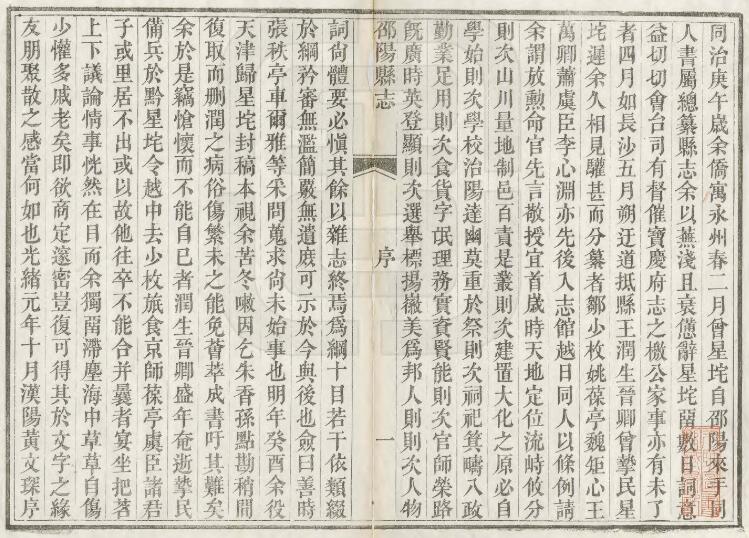 同治庚午歲余僑寓永州春二月曾星垞自邵陽來手同
人書屬總纂縣志余以蕪淺且衰憊辭星垞惡數日詞意
益切切會台司有督催寶慶府志之檄公家事亦有未了
者四月如長沙五月朔迂道抵縣王潤生晉卿曾摯民星
垞遲余久相見驩甚而分纂者鄒少枚姚葆亭魏矩心王
萬卿蕭虞臣李心淵亦先後入志館越日同人以條例請
余謂放勲命官先言敬授宜首歲時天地定位流峙攸分
則次山川量地制邑百責是叢則次建置大化之原必自
學始則次學校治陽達幽莫重於祭則次祠祀箕疇八政
勤業足用則次食貨字氓理務實資賢能則次官師榮路
旣廣時英登顯則次選舉標揚嶶美爲邦人則則次人物
邵陽縣志
序
一
詞尙體要必愼其餘以雜志終焉爲綱十目若干依類綴
於綱矜審無濫簡嚴無遺庶可示於今與後也僉曰善時
張秩亭車爾雅等采問蒐求尙未始事也明年癸酉余役
天津歸星垞封稿本視余苦冬嗽因乞朱香孫點勘稍閒
復取而刪潤之病俗傷繁未之能免薈萃成書吁其難矣
余於是竊愴懷而不能自已者潤生晉卿盛年奄逝摯民
備兵於黔星垞令越中去少枚旅食京師葆亭虞臣諸君
子或里居不出或以故他往卒不能合并曩者宴坐把茗
上下議論情事恍然在目而余獨罶滯塵海中草草自傷
少懽多戚老矣即欲商定遠密豈復可得其於文字之緣
友朋聚散之感當何如也光緒元年十月漢陽黃文琛序